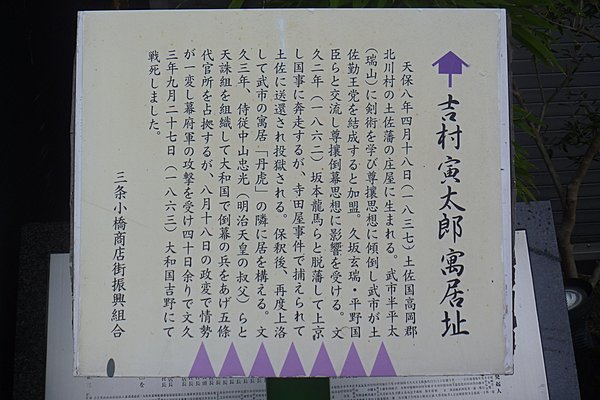 吉村寅太郎寓居址
天保八年四月十八日(一八三七)土佐国高岡郡
北川村の土佐藩の庄屋に生まれる。武市半平太
(瑞山)に剣術を学び尊攘思想に傾倒し武市が土
佐勤王党を結成すると加盟。久坂玄瑞・平野国
臣らと交流し尊攘倒幕思想に影響を受ける。文
久二年(一八六二)坂本龍馬らと脱藩して上京
し国事に奔走するが、寺田屋事件で捕えられて
土佐に送還され投獄される。保釈後、再度上洛
して武市の寓居「丹虎」の隣に居を構える。文
久三年、侍従中山忠光(明治天皇の叔父)らと
天誅組を組織して大和国で倒幕の兵をあげ五條
代官所を占拠するが、八月十八日の政変で情勢
が一変し幕府軍の攻撃を受け四十日余りで文久
三年九月二十七日(一八六三)大和国吉野にて
戦死しました。
三条小橋商店街振興組合